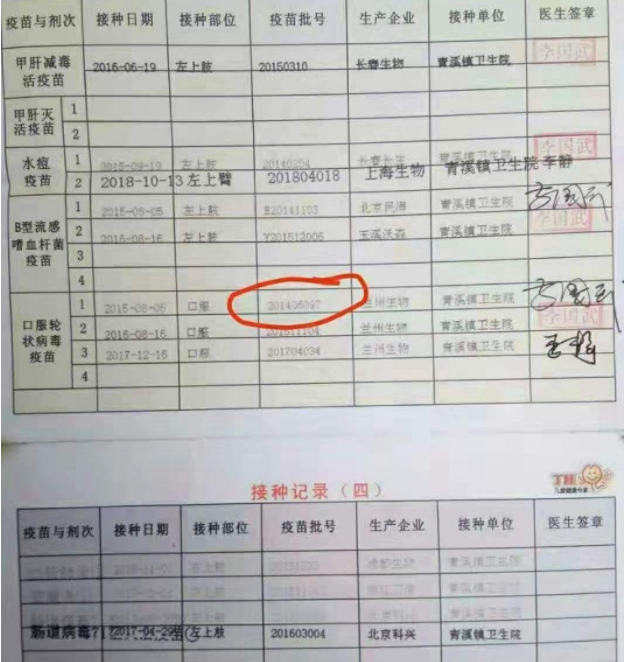 疫苗与剂次 接种日期 接种部位 疫苗批号 生产企业 接种单位 医生签章
甲肝减毒活疫苗 2016-06-19 左上肢 20150310 长春生物 青溪镇卫生院 李国武
甲肝灭活疫苗 1
2
水痘疫苗 1 2015-09-19 左上肢 20140204 长春长生 青溪镇卫生院 李国武
2 2018-10-13 左上臂 201804018 上海生物 青溪镇卫生院 李静
B型流感嗜血杆菌疫苗 1 2015-06-05 左上肢 北京民海 青溪镇卫生院
2 2016-08-16 左上肢 Y201512005 玉溪沃森 青溪镇卫生院 李国武
3
4
口服轮状病毒疫苗 1 2015-08-05 口服 201405097 兰州生物 青溪镇卫生院
2 2016-08-16 口服 201511104 兰州生物 青溪镇卫生院 李国武
3 2017-12-16 口服 201704034 兰州生物 青溪镇卫生院
4
接种记录（四）
疫苗与剂次 接种日期 接种部位 疫苗批号 生产企业 接种单位 医生签章
左上肢 成都生物 青溪镇卫生院
左上肢 青溪镇卫生院
左上肢 北京科兴 青溪镇卫生院
肠道病毒71 2017-04-29 左上肢 201603004 北京科兴 青溪镇卫生院